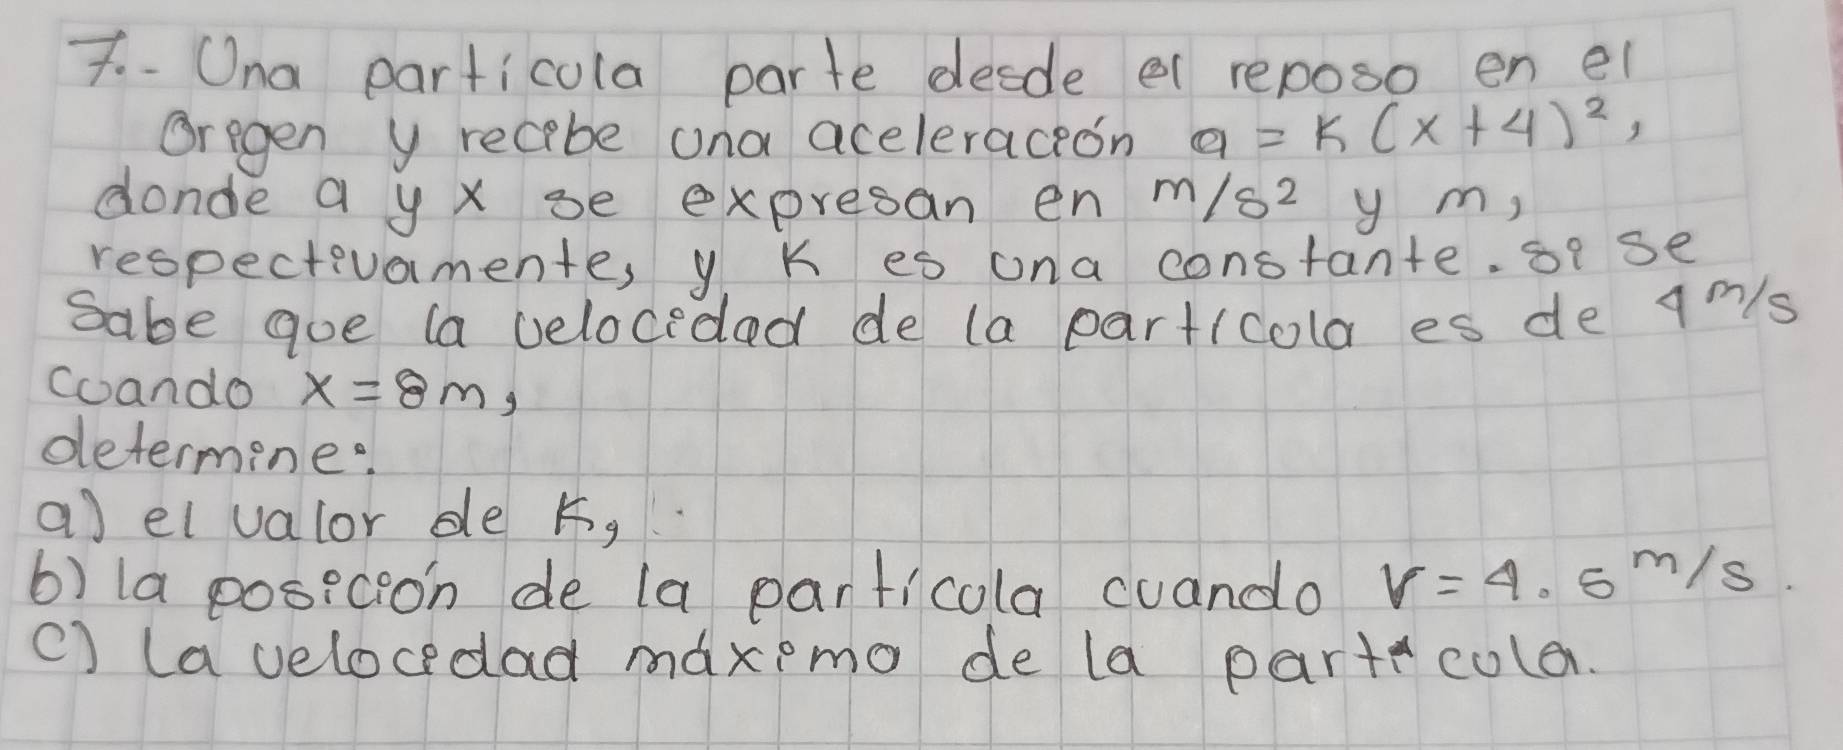 7.- Una particula parte desde el reposo en el
Origen y recibe una aceleración a = K(x+4)²,
donde a y x se expresan en m/s² y m,
respectivamente, y K es una constante. si se
Sabe que la velocidad de la particula es de 4 m/s
cuando x = 8m,
determine:
a) el valor de K,
b) la posición de la partícula cuando v = 4.5 m/s.
c) La velocidad máximo de la particula.